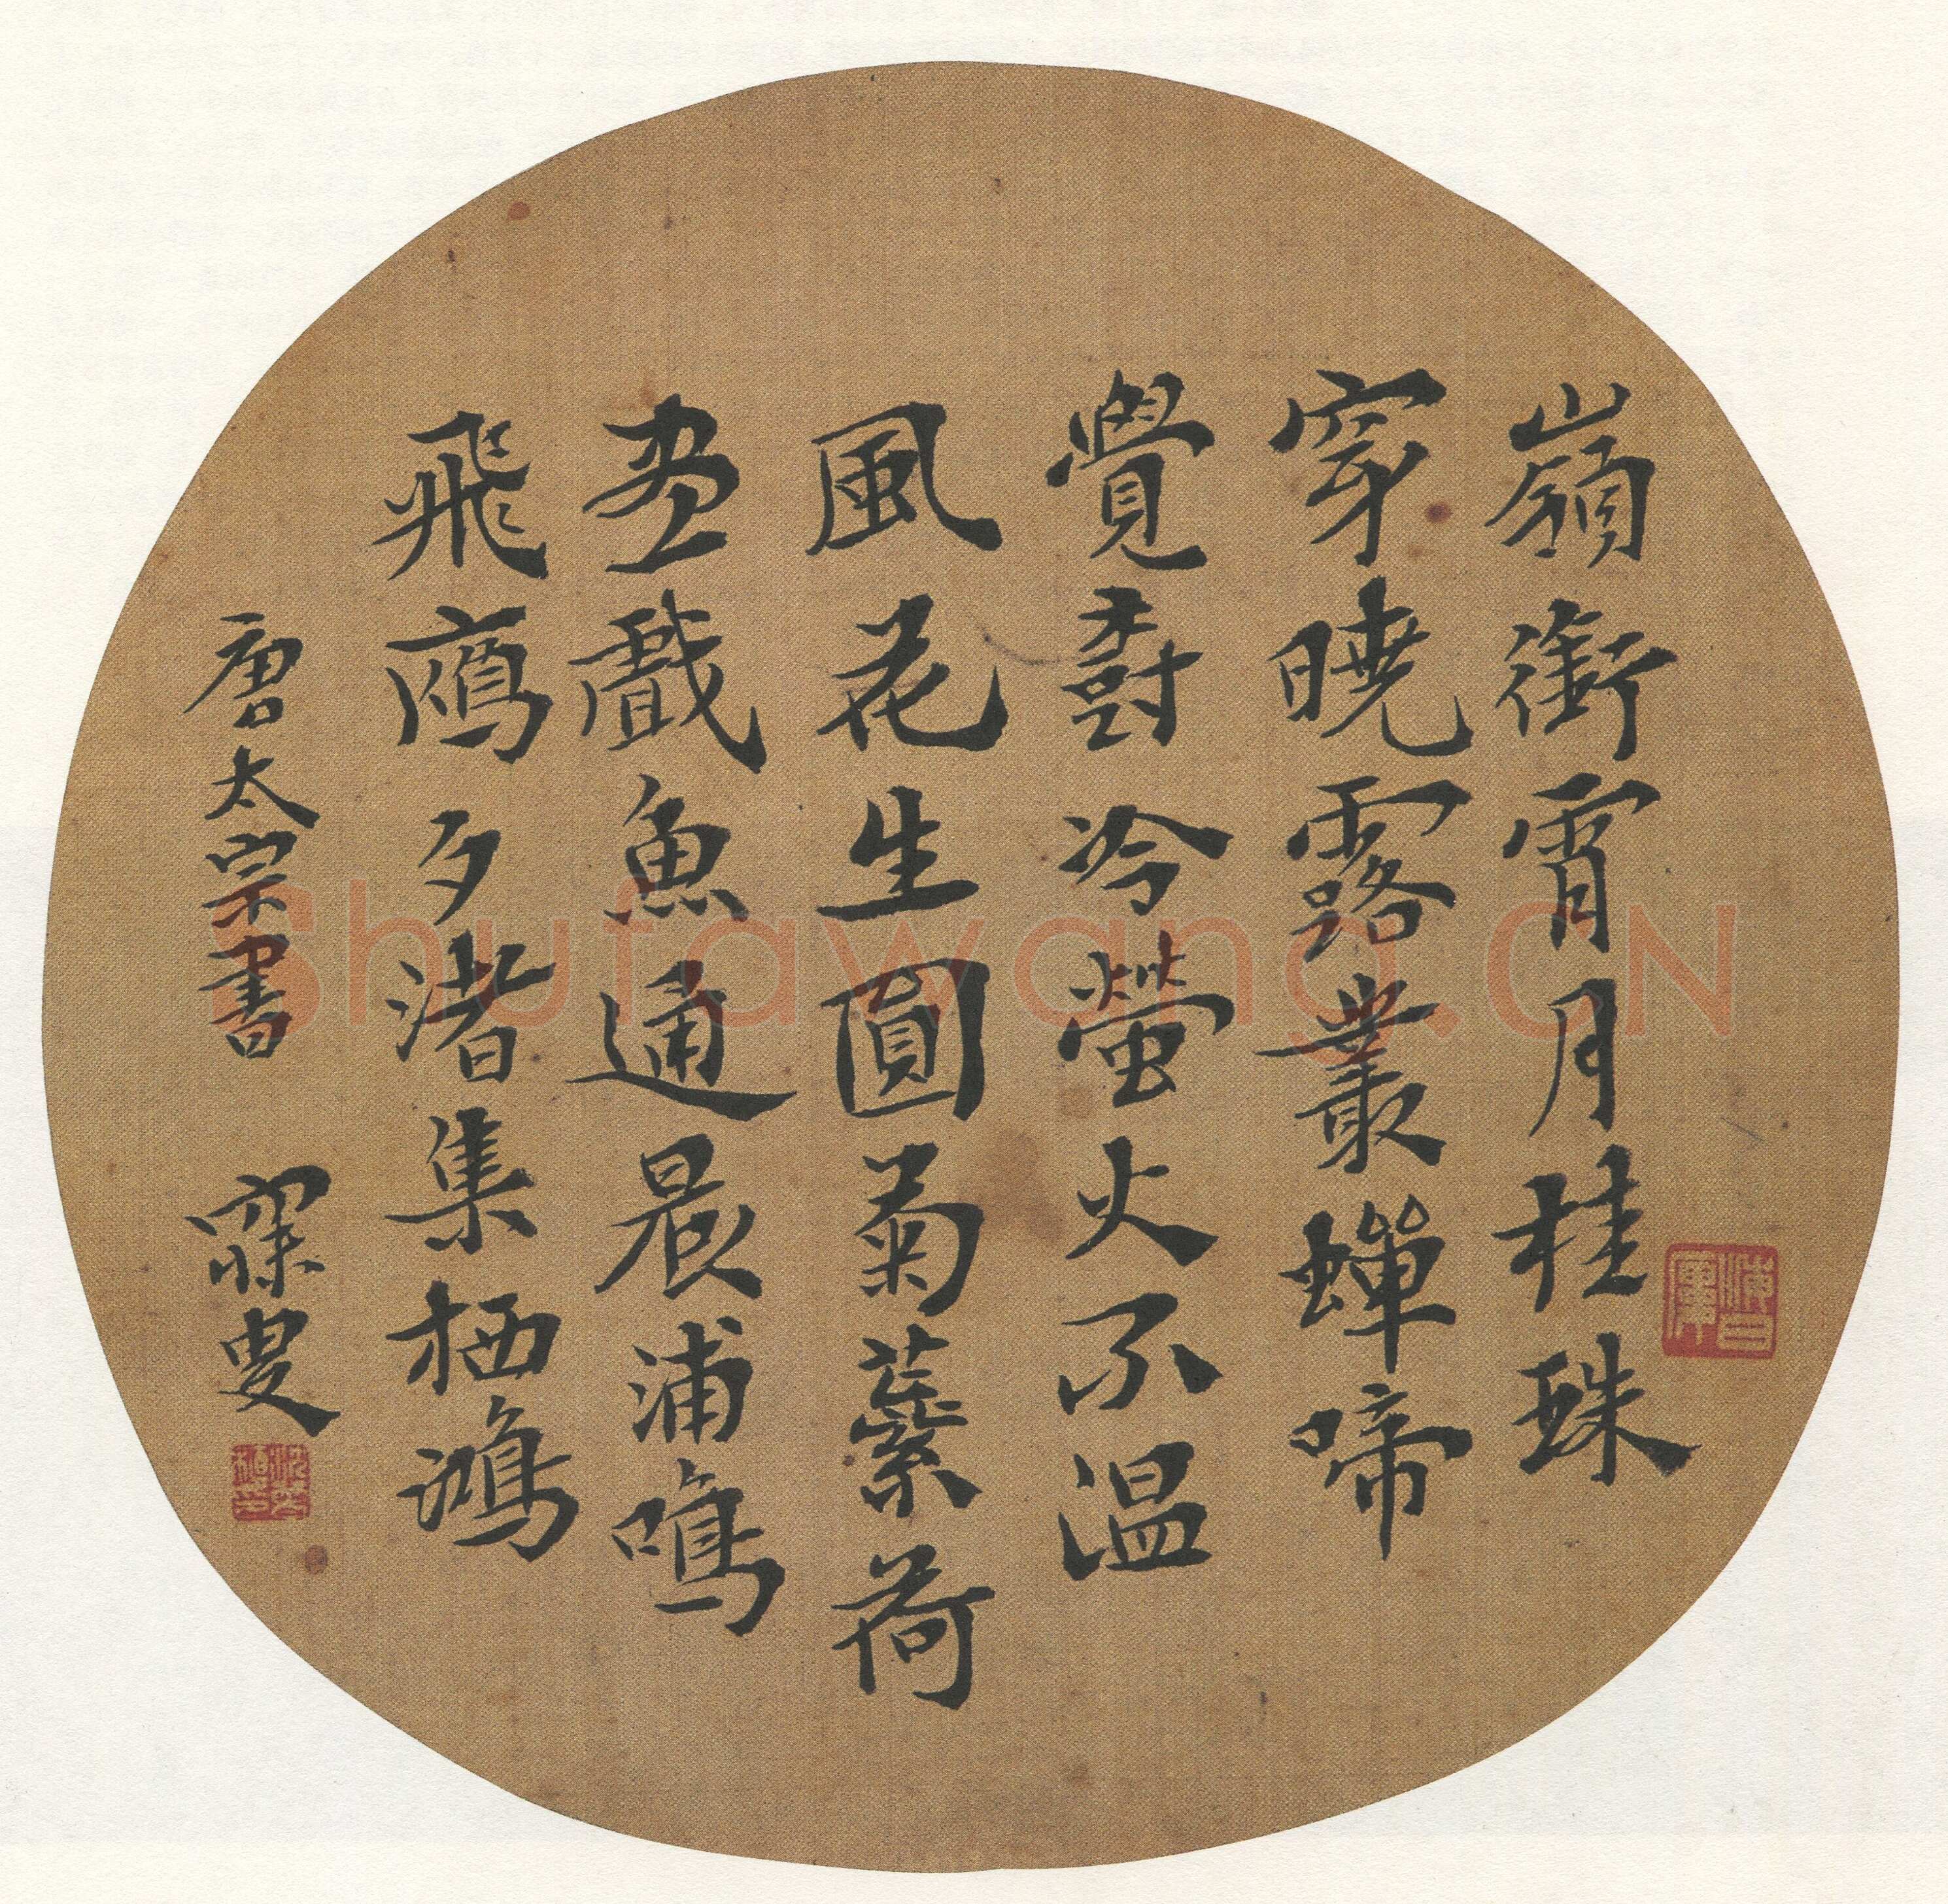 嶺銜霄月桂珠
穿曉露叢蟬啼
覺樹冷螢火不溫
風花生圓菊蘂荷
盡戲魚通晨浦鳴
飛鴈夕渚集栖鴻
唐太宗書 寐叟
海日廔
Shufawang.CN